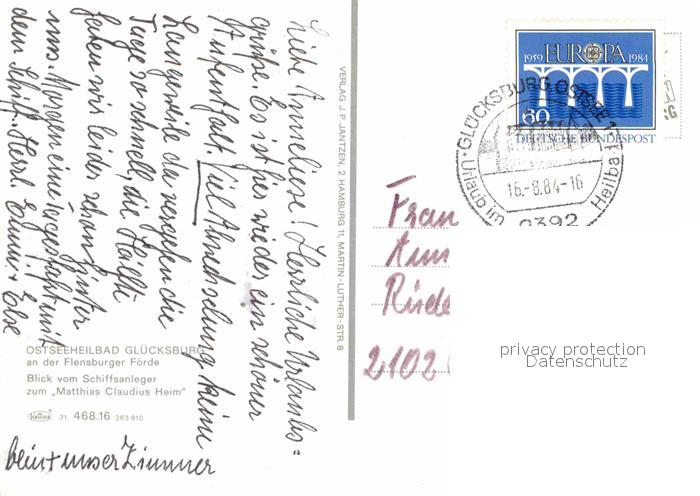 Liebe Anneliese! Herrliche Urlaubs-
grüße. Es ist hier wieder ein schöner
Aufenthalt. Viel Abwechslung keine
Langeweile da vergehen die
Tage so schnell, die Hälfte
haben wir leider schon hinter
uns. Morgen eine Tagesfahrt mit
dem Schiff. Herzl.
beim unser Zimmer
VERLAG J. P. JANTZEN, 2 HAMBURG 11, MARTIN-LUTHER-STR. 8
OSTSEEHEILBAD GLÜCKSBURG
an der Flensburger Förde
Blick vom Schiffsanleger
zum „Matthias Claudius Heim"
31. 468.16 263 810
1959 EUROPA 1984
60
DEUTSCHE BUNDESPOST
GLÜCKSBURG, OSTSEE 1
16.-8.84-16
Urlaub im Heilba
2392
Frau
Ann
Rüde
2102
privacy protection
Datenschutz